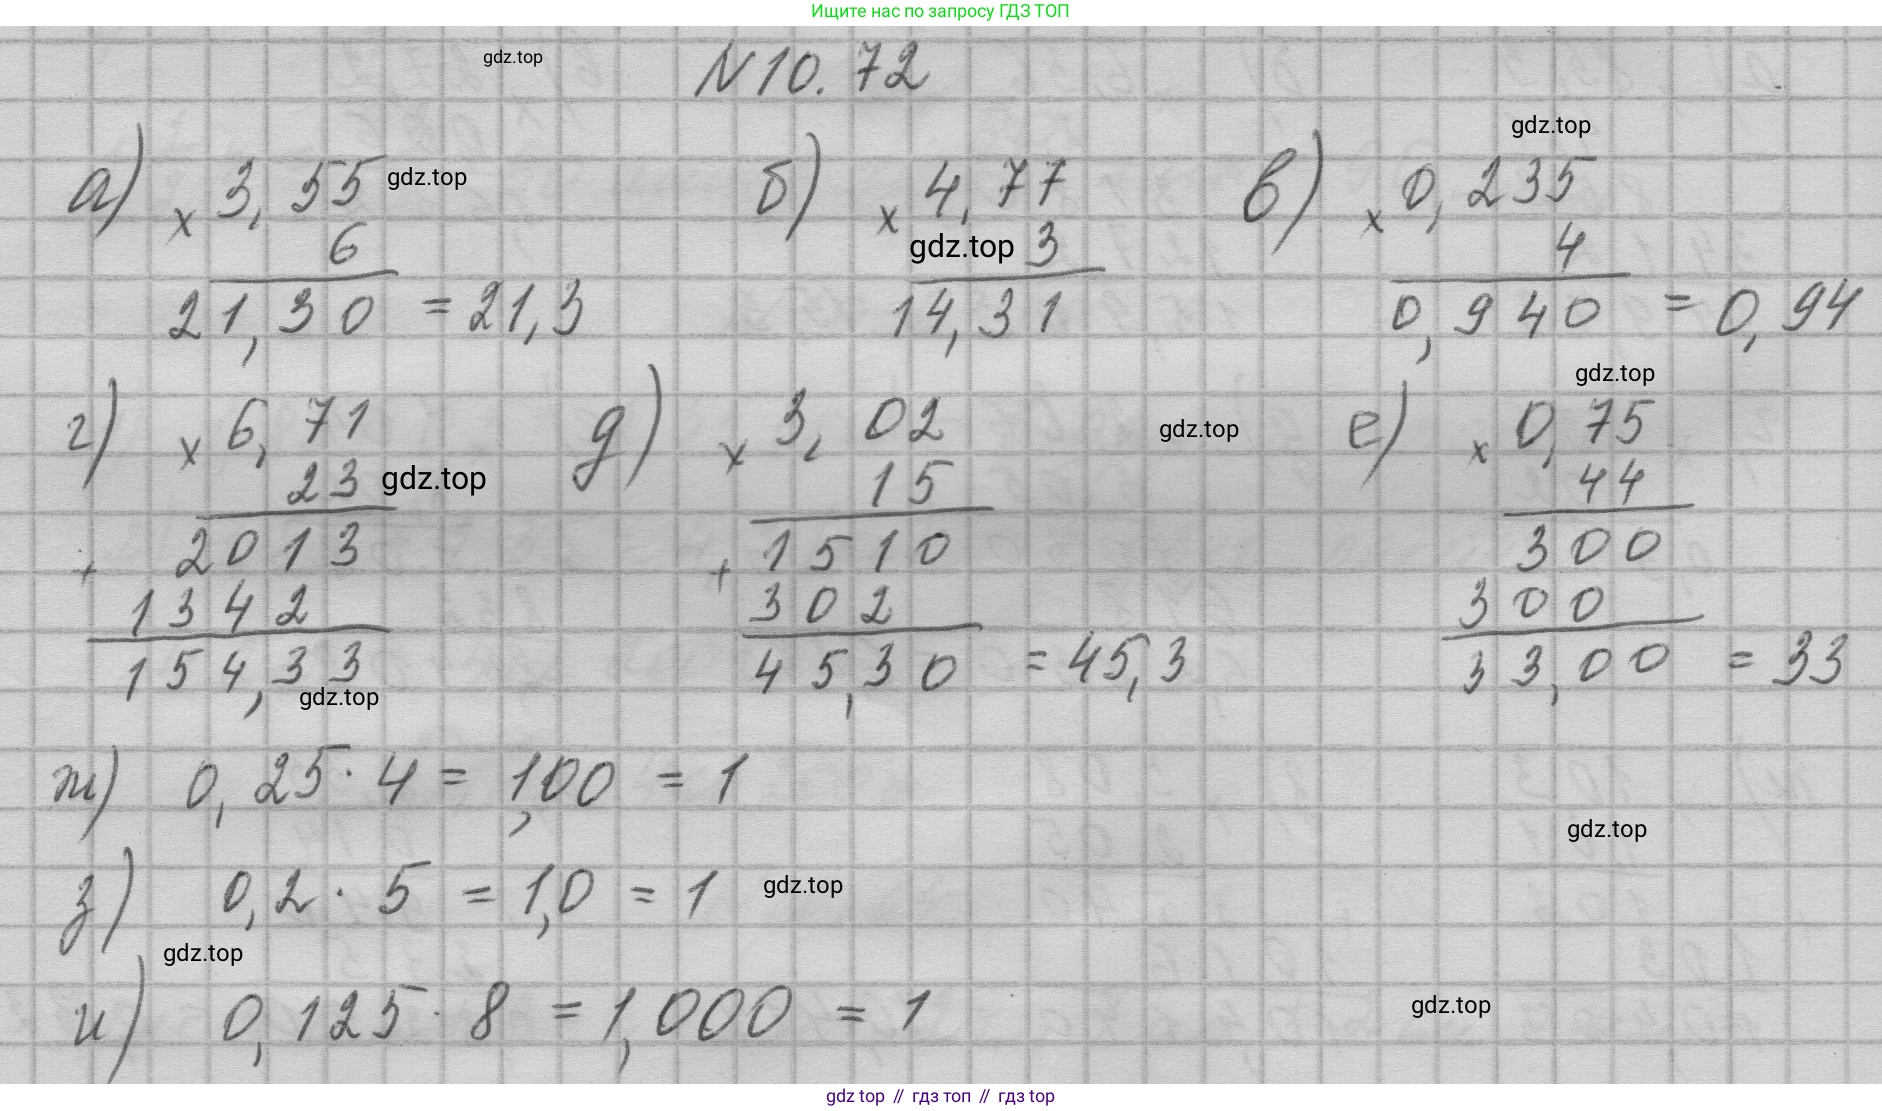 Ищите нас по запросу ГДЗ ТОП
N10.72
gdz.top
а) × 3,55
6
21,30 = 21,3
gdz.top
б) × 4,77
3
14,31
gdz.top
в) × 0,235
4
0,940 = 0,94
gdz.top
г) × 6,71
23
+ 2013
1342
154,33
gdz.top
gdz.top
д) × 3,02
15
+ 1510
302
45,30 = 45,3
gdz.top
е) × 0,75
44
300
300
33,00 = 33
gdz.top
ж) 0,25 · 4 = 1,00 = 1
gdz.top
з) 0,2 · 5 = 1,0 = 1
gdz.top
gdz.top
и) 0,125 · 8 = 1,000 = 1
gdz.top
gdz top // гдз топ // гдз top